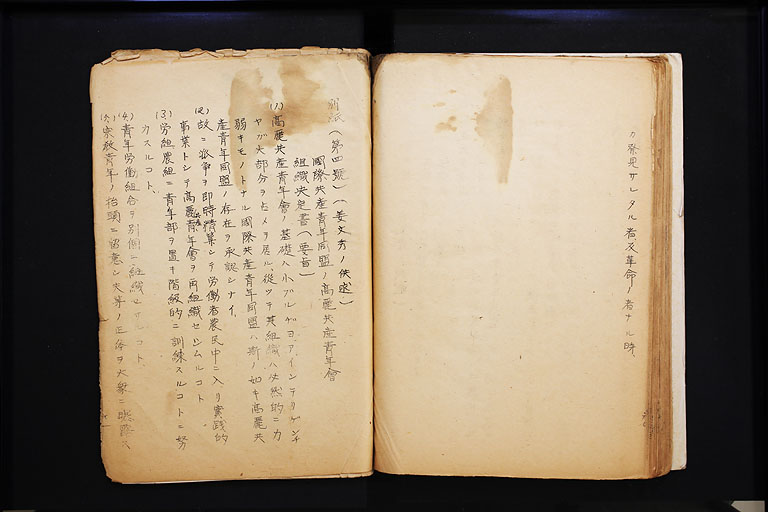 カ発見サレタル者及革命ノ者ナル時、
別紙（第四號）（姜文秀ノ供述）
國際共産青年同盟ノ高麗共産青年會
組織決定書（要旨）
(1)高麗共産青年會ノ基礎ハ小ブルヂヨアインテリゲンチ
ヤガ大部分ヲ占メテ居ル、従ツテ其組織ハ必然的ニ力
弱キモノトナル國際共産青年同盟ハ斯ノ如キ高麗共
産青年同盟ノ存在ヲ承認シナイ、
(2)故ニ派争ヲ即時精算シテ労働者農民中ニ入リ實践的
事業トシテ高麗共産青年會ヲ再組織セシムルコト
(3)労組農組ニ青年部ヲ置キ階級的ニ訓練スルコトニ努
力スルコト、
(4)青年労働組合ヲ別個ニ組織セザルコト、
(5)宗教青年ノ抬頭ニ留意シ夫等ノ正体ヲ大衆ニ暴露ス